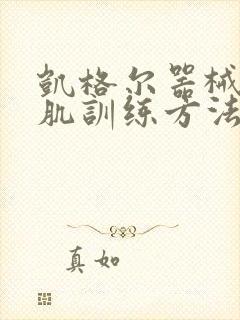 凱格尔器械
肌訓练方法
真如